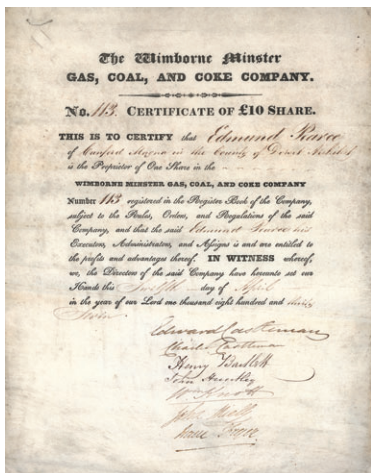 The Wimborne Minster
GAS, COAL, AND COKE COMPANY.
No. 113. CERTIFICATE OF £10 SHARE.
THIS IS TO CERTIFY that Edmund Pearce
of Canford Magna in the County of Dorset
is the Proprietor of One Share in the
WIMBORNE MINSTER GAS, COAL, AND COKE COMPANY
Number 113 registered in the Register Book of the Company,
subject to the Rules, Orders, and Regulations of the said
Company, and that the said Edmund Pearce his
Executors, Administrators, and Assigns is and are entitled to
the profits and advantages thereof. IN WITNESS whereof,
we, the Directors of the said Company have hereunto set our
Hands this Twelfth day of April
in the year of our Lord one thousand eight hundred and thirty
Seven
Edward Castleman
Charles Castleman
Henry Bartlett
John
Isaac Fryer